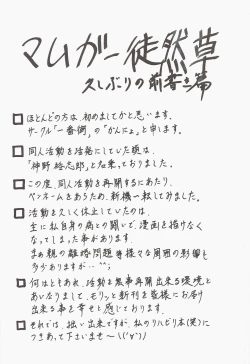 マムガー徒然草
久しぶりの前書き篇
□ ほとんどの方は、初めましてかと思います。
サークル「一番側」の「かんにょ」と申します。
□ 同人活動を活発にしていた頃は、
「神野 裕志郎」と名乗っておりました。
□ この度、同人活動を再開するにあたり、
ペンネームをあらため、新機一転してみました。
□ 活動を久しく休止していたのは、
主に私自身の病との闘いで、漫画を描けなく
なってしまった事があります。
まあ親の離婚問題等様々な周囲の影響も
多少ありますが・・^^;
□ 何はともあれ、活動を無事再開出来る環境と
あいなりまして、モリッと新刊を皆様にお届け
出来る事を幸せと感じております。
□ それでは、拙い出来ですが、私のリハビリ本(笑)に
つきあって下さいませ〜\(^∀^)/